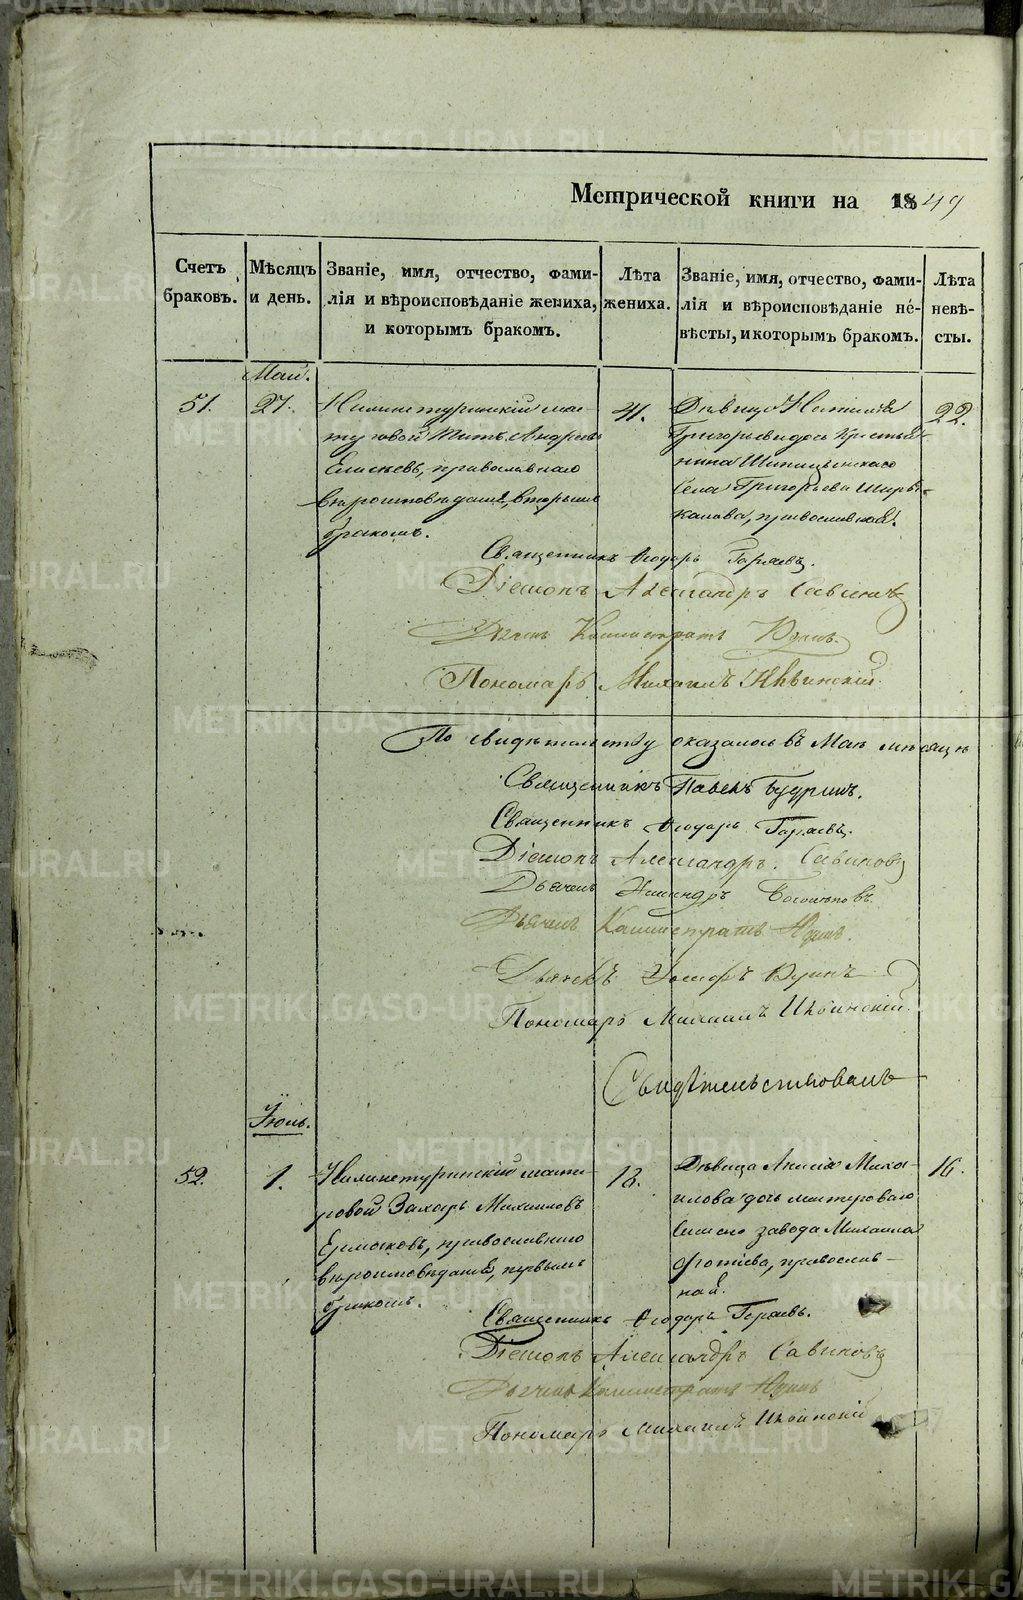 Метрической книги на 1849
Счетъ браковъ.
Мѣсяцъ и день.
Званіе, имя, отчество, фами-
лія и вѣроисповѣданіе жениха,
и которымъ бракомъ.
Лѣта жениха.
Званіе, имя, отчество, фами-
лія и вѣроисповѣданіе не-
вѣсты, и которымъ бракомъ.
Лѣта невѣ-
сты.
Май.
51.
27.
Нижнетуринскій мас-
теровой Титъ Андреевъ
Елисѣевъ, православнаго
вѣроисповѣданія, вторымъ
бракомъ.
41.
Дѣвица Наталія
Григорьева дочь крестья-
нина
села Григорья
православной.
22.
Священникъ Ѳеодоръ Гаряевъ.
Діаконъ Александръ Савиновъ
Дьячекъ Каллистратъ Юдинъ.
Пономарь Михаилъ
По свидѣтельству оказалось въ Маѣ мѣсяцѣ
Священникъ Павелъ Будринъ.
Священникъ Ѳеодоръ Гаряевъ.
Діаконъ Александръ Савиновъ
Дьячекъ
Дьячекъ Каллистратъ Юдинъ.
Дьячекъ
Пономарь Михаилъ
Свидѣтельствовалъ
Іюль.
52.
1.
Нижнетуринскій масте-
ровой Захаръ Михайловъ
Ермаковъ, православнаго
вѣроисповѣданія, первымъ
бракомъ.
18.
Дѣвица Анисія Миха-
илова дочь мастероваго
завода Михаила
Фотіева, православ-
ной.
16.
Священникъ Ѳеодоръ Гаряевъ.
Діаконъ Александръ Савиновъ
Дьячекъ Каллистратъ Юдинъ
Пономарь Михаилъ
METRIKI.GASO-URAL.RU